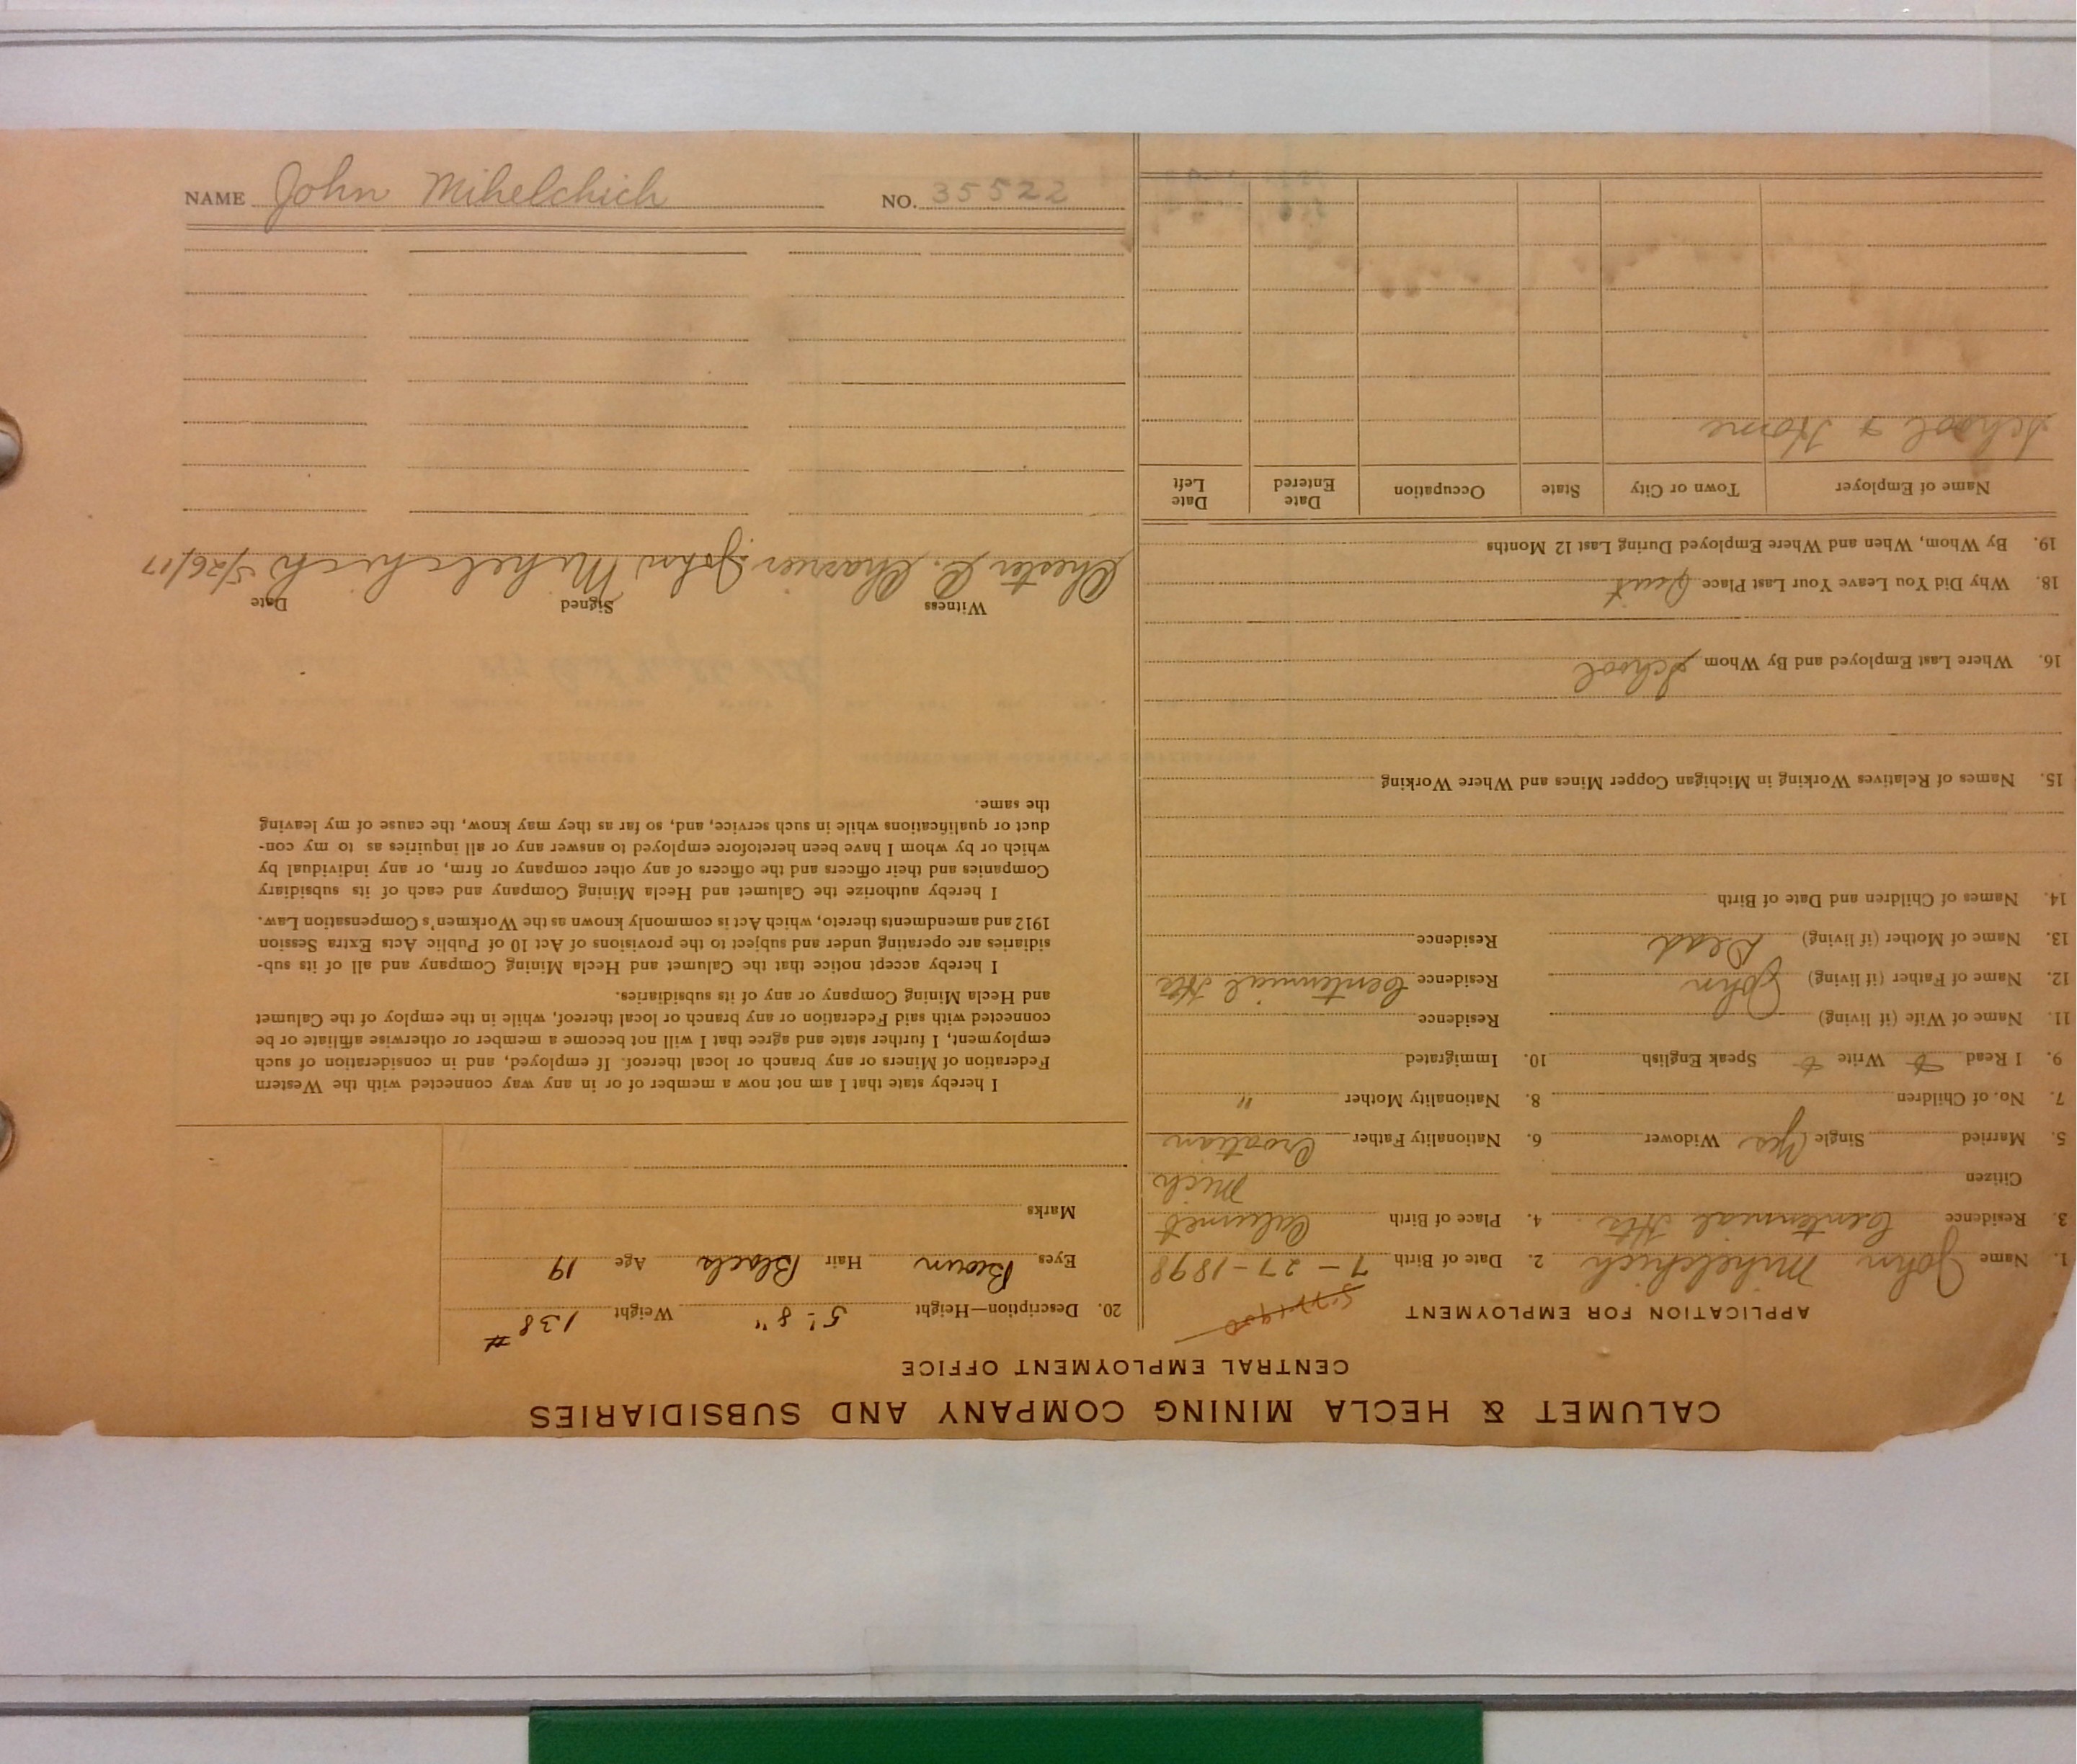 NAME John Mihelchich NO. 35522
CALUMET & HECLA MINING COMPANY AND SUBSIDIARIES
CENTRAL EMPLOYMENT OFFICE
APPLICATION FOR EMPLOYMENT
1. Name John Mihelchich 2. Date of Birth 7-27-1898
3. Residence Centennial Hts 4. Place of Birth Calumet
Citizen Mich
5. Married Single Yes Widower 6. Nationality Father Croatian
7. No. of Children 8. Nationality Mother "
9. I Read Write Speak English 10. Immigrated
11. Name of Wife (if living) Residence
12. Name of Father (if living) John Residence Centennial Hts
13. Name of Mother (if living) Dead Residence
14. Names of Children and Date of Birth
15. Names of Relatives Working in Michigan Copper Mines and Where Working
16. Where Last Employed and By Whom School
18. Why Did You Leave Your Last Place Quit
19. By Whom, When and Where Employed During Last 12 Months
Name of Employer Town or City State Occupation Date Entered Date Left
School & Home
20. Description—Height 5' 8" Weight 138#
Eyes Brown Hair Black Age 19
Marks
I hereby state that I am not now a member of or in any way connected with the Western
Federation of Miners or any branch or local thereof. If employed, and in consideration of such
employment, I further state and agree that I will not become a member or otherwise affiliate or be
connected with said Federation or any branch or local thereof, while in the employ of the Calumet
and Hecla Mining Company or any of its subsidiaries.
I hereby accept notice that the Calumet and Hecla Mining Company and all of its sub-
sidiaries are operating under and subject to the provisions of Act 10 of Public Acts Extra Session
1912 and amendments thereto, which Act is commonly known as the Workmen's Compensation Law.
I hereby authorize the Calumet and Hecla Mining Company and each of its subsidiary
Companies and their officers and the officers of any other company or firm, or any individual by
which or by whom I have been heretofore employed to answer any or all inquiries as to my con-
duct or qualifications while in such service, and, so far as they may know, the cause of my leaving
the same.
Witness Signed Date
Chester C. Charrier John Mihelchich 5/26/17